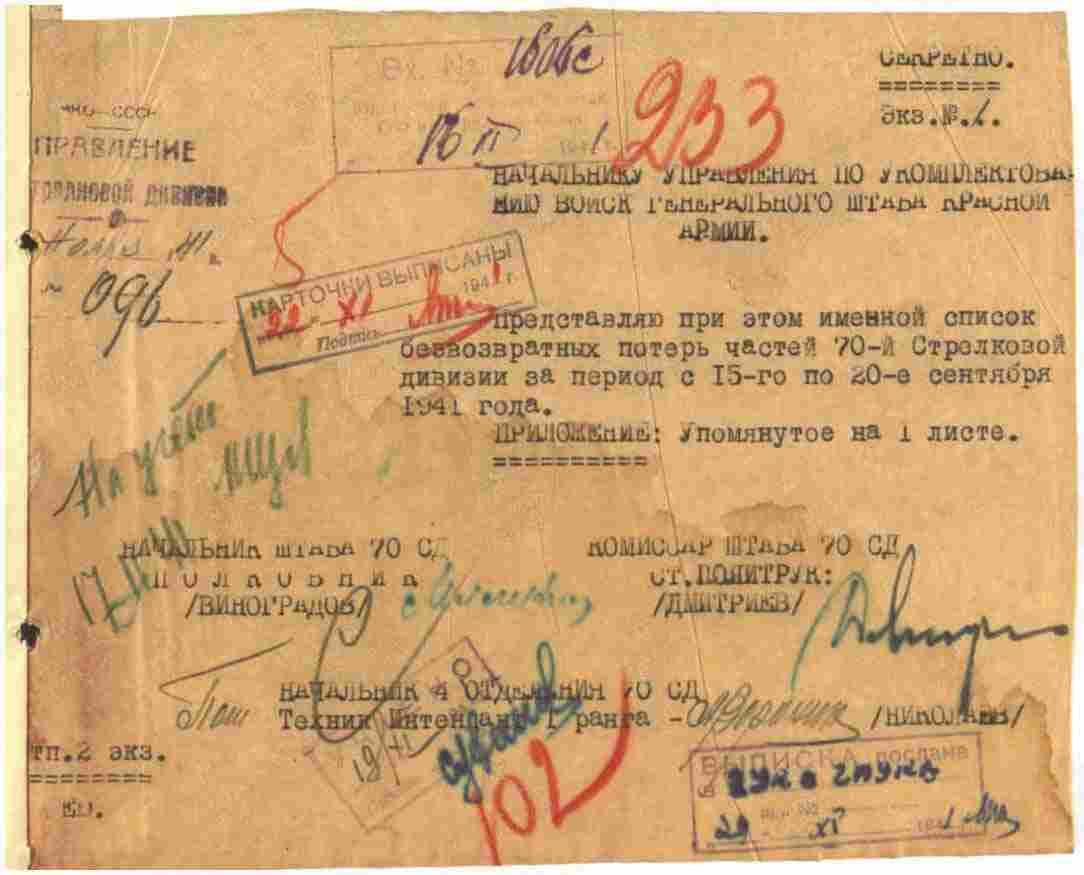 СЕКРЕТНО.
Экз.№.1.
Вх. №
1606с
16 II 1941
233
НКО-СССР
УПРАВЛЕНИЕ
дивизии
41 г.
096
НАЧАЛЬНИКУ УПРАВЛЕНИЯ ПО УКОМПЛЕКТОВА-
НИЮ ВОЙСК ГЕНЕРАЛЬНОГО ШТАБА КРАСНОЙ
АРМИИ.
КАРТОЧКИ ВЫПИСАНЫ
22 XI 1941 г.
Подпись
Представляю при этом именной список
безвозвратных потерь частей 70-й Стрелковой
дивизии за период с 15-го по 20-е сентября
1941 года.
ПРИЛОЖЕНИЕ: Упомянутое на 1 листе.
На учёт
НАЧАЛЬНИК ШТАБА 70 СД
ПОЛКОВНИК
/ВИНОГРАДОВ/
КОМИССАР ШТАБА 70 СД
СТ.ПОЛИТРУК:
/ДМИТРИЕВ/
НАЧАЛЬНИК 4 ОТДЕЛЕНИЯ 70 СД
Техник Интендант 1 ранга - /НИКОЛАЕВ/
тп.2 экз.
ЕД.
19/XI
102
ВЫПИСКА послана
в
29 XI 1941